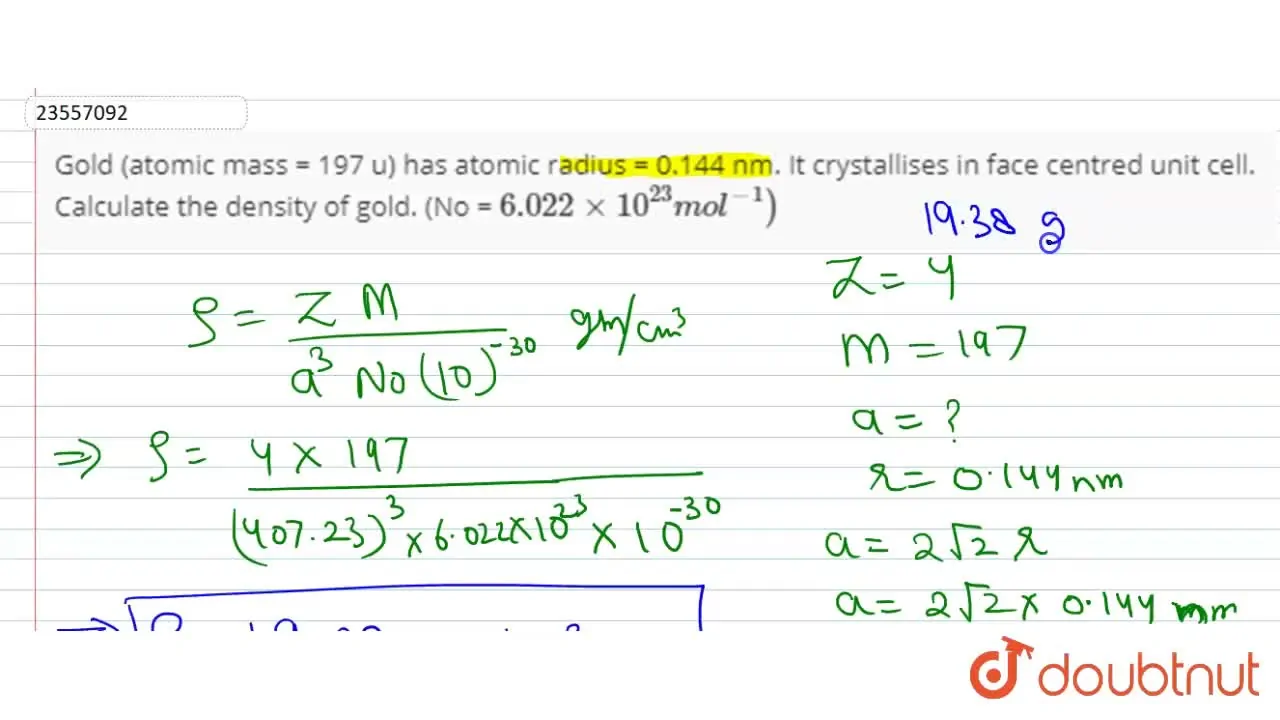 23557092
Gold (atomic mass = 197 u) has atomic radius = 0.144 nm. It crystallises in face centred unit cell.
Calculate the density of gold. (No = 6.022 × 10^23 mol^−1)
19.38 g
ρ = Z M / a^3 No (10)^-30 gm/cm^3
Z = 4
m = 197
a = ?
⇒ ρ = 4 × 197 / (407.23)^3 × 6.022×10^23 × 10^-30
r = 0.144 nm
a = 2√2 r
a = 2√2 × 0.144 nm
⇒
doubtnut